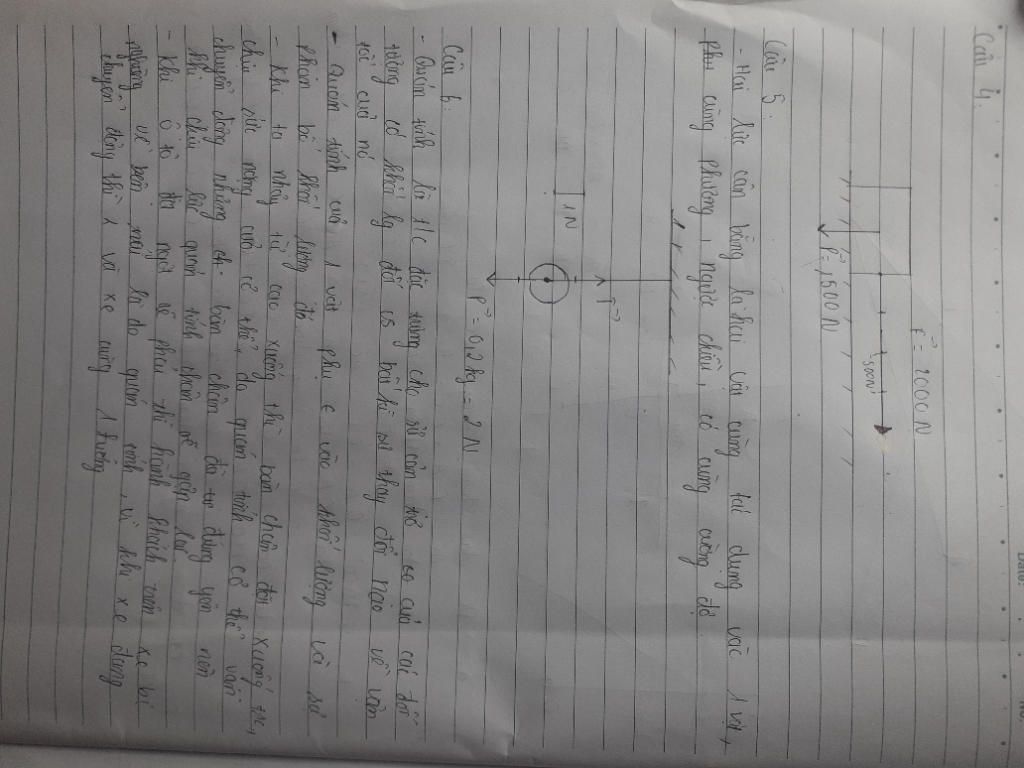 Câu 4:
F = 2000N
500N
P = 1500N
Câu 5:
- Hai lực cân bằng là hai lực cùng tác dụng vào 1 vật,
cùng phương, ngược chiều, có cùng cường độ
F
1N
P = 0,2kg = 2N
Câu 6:
- Quán tính là t/c đặc trưng cho sự cản trở của cái đối
tượng có khối lg đối vs bất kì sự thay đổi nào về vận
tốc của nó
- Quán tính của 1 vật phụ ∈ vào khối lượng và sự
phân bố khối lượng đó
- Khi ta nhảy từ cao xuống thì bàn chân đó xuống tr,
chịu sức nặng của cơ thể, do quán tính cơ thể vẫn
chuyển động nhưng bàn chân đã tự dưng yên nên
khi chịu lực quán tính chân sẽ gập lại
- Khi ô tô đi ngã rẽ phải thì hành khách trên xe bị
nghiêng về bên trái là do quán tính, vì khi xe đang
chuyển động thì x và xe cùng 1 hướng